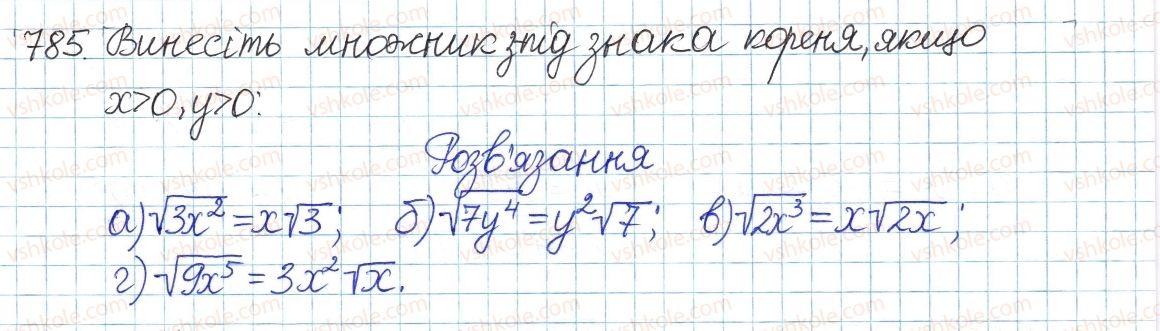 785. Винесіть множник з під знака кореня, якщо
x>0, y>0:
Розв'язання
а) √3x² = x√3; б) √7y⁴ = y²√7; в) √2x³ = x√2x;
г) √9x⁵ = 3x²√x.